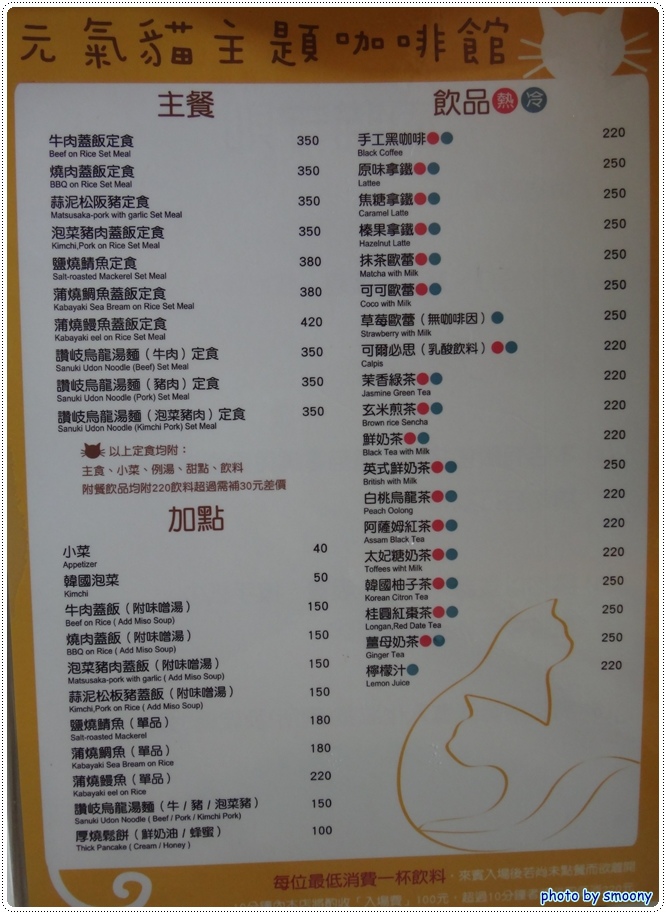 元氣貓主題咖啡館
主餐
牛肉蓋飯定食 350
Beef on Rice Set Meal
燒肉蓋飯定食 350
BBQ on Rice Set Meal
蒜泥松阪豬定食 350
Matsusaka-pork with garlic Set Meal
泡菜豬肉蓋飯定食 350
Kimchi,Pork on Rice Set Meal
鹽燒鯖魚定食 380
Salt-roasted Mackerel Set Meal
蒲燒鯛魚蓋飯定食 380
Kabayaki Sea Bream on Rice Set Meal
蒲燒鰻魚蓋飯定食 420
Kabayaki eel on Rice Set Meal
讚岐烏龍湯麵（牛肉）定食 350
Sanuki Udon Noodle (Beef) Set Meal
讚岐烏龍湯麵（豬肉）定食 350
Sanuki Udon Noodle (Pork) Set Meal
讚岐烏龍湯麵（泡菜豬肉）定食 350
Sanuki Udon Noodle (Kimchi Pork) Set Meal
以上定食均附：
主食、小菜、例湯、甜點、飲料
附餐飲品均附220飲料超過需補30元差價
加點
小菜 40
Appetizer
韓國泡菜 50
Kimchi
牛肉蓋飯（附味噌湯） 150
Beef on Rice ( Add Miso Soup)
燒肉蓋飯（附味噌湯） 150
BBQ on Rice ( Add Miso Soup)
泡菜豬肉蓋飯（附味噌湯） 150
Matsusaka-pork with garlic ( Add Miso Soup)
蒜泥松板豬蓋飯（附味噌湯） 150
Kimchi,Pork on Rice ( Add Miso Soup)
鹽燒鯖魚（單品） 180
Salt-roasted Mackerel
蒲燒鯛魚（單品） 180
Kabayaki Sea Bream on Rice
蒲燒鰻魚（單品） 220
Kabayaki eel on Rice
讚岐烏龍湯麵（牛 / 豬 / 泡菜豬） 150
Sanuki Udon Noodle ( Beef / Pork / Kimchi Pork)
厚燒鬆餅（鮮奶油 / 蜂蜜） 100
Thick Pancake ( Cream / Honey )
飲品 熱 冷
手工黑咖啡 220
Black Coffee
原味拿鐵 250
Lattee
焦糖拿鐵 250
Caramel Latte
榛果拿鐵 250
Hazelnut Latte
抹茶歐蕾 250
Matcha with Milk
可可歐蕾 250
Coco with Milk
草莓歐蕾（無咖啡因） 250
Strawberry with Milk
可爾必思（乳酸飲料） 220
Calpis
茉香綠茶 220
Jasmine Green Tea
玄米煎茶 220
Brown rice Sencha
鮮奶茶 220
Black Tea with Milk
英式鮮奶茶 250
British with Milk
白桃烏龍茶 220
Peach Oolong
阿薩姆紅茶 220
Assam Black Tea
太妃糖奶茶 220
Toffees wiht Milk
韓國柚子茶 250
Korean Citron Tea
桂圓紅棗茶 250
Longan,Red Date Tea
薑母奶茶 250
Ginger Tea
檸檬汁 220
Lemon Juice
每位最低消費一杯飲料，來賓入場後若尚未點餐而欲離開
photo by smoony